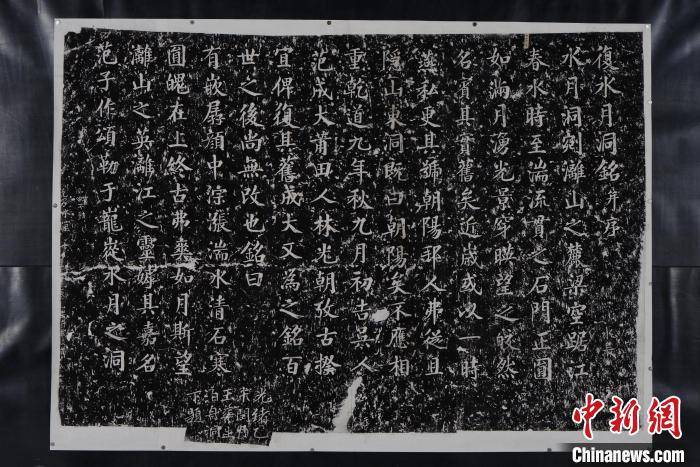 復水月洞銘并序
水月洞剜灕山之麓梁空踞江
春水時至湍流貫之石門正圓
如滿月湧光景穿映望之皎然
名實其實舊矣近歲或以一時
燕私更其號朝陽邦人弗從且
隱山東洞既曰朝陽矣不應相
重乾道九年秋九月初吉吳人
范成大莆田人林光朝攷古揆
宜俾復其舊成大又為之銘百
世之後尚無改也銘曰
有嵌孱顏中淙漲湍水清石寒
圓魄在上終古弗爽如月斯望
灕山之英灕江之靈嫭其嘉名
范子作頌勒于龍嵸水月之洞
光緒乙
下題
中新网
Chinanews.com